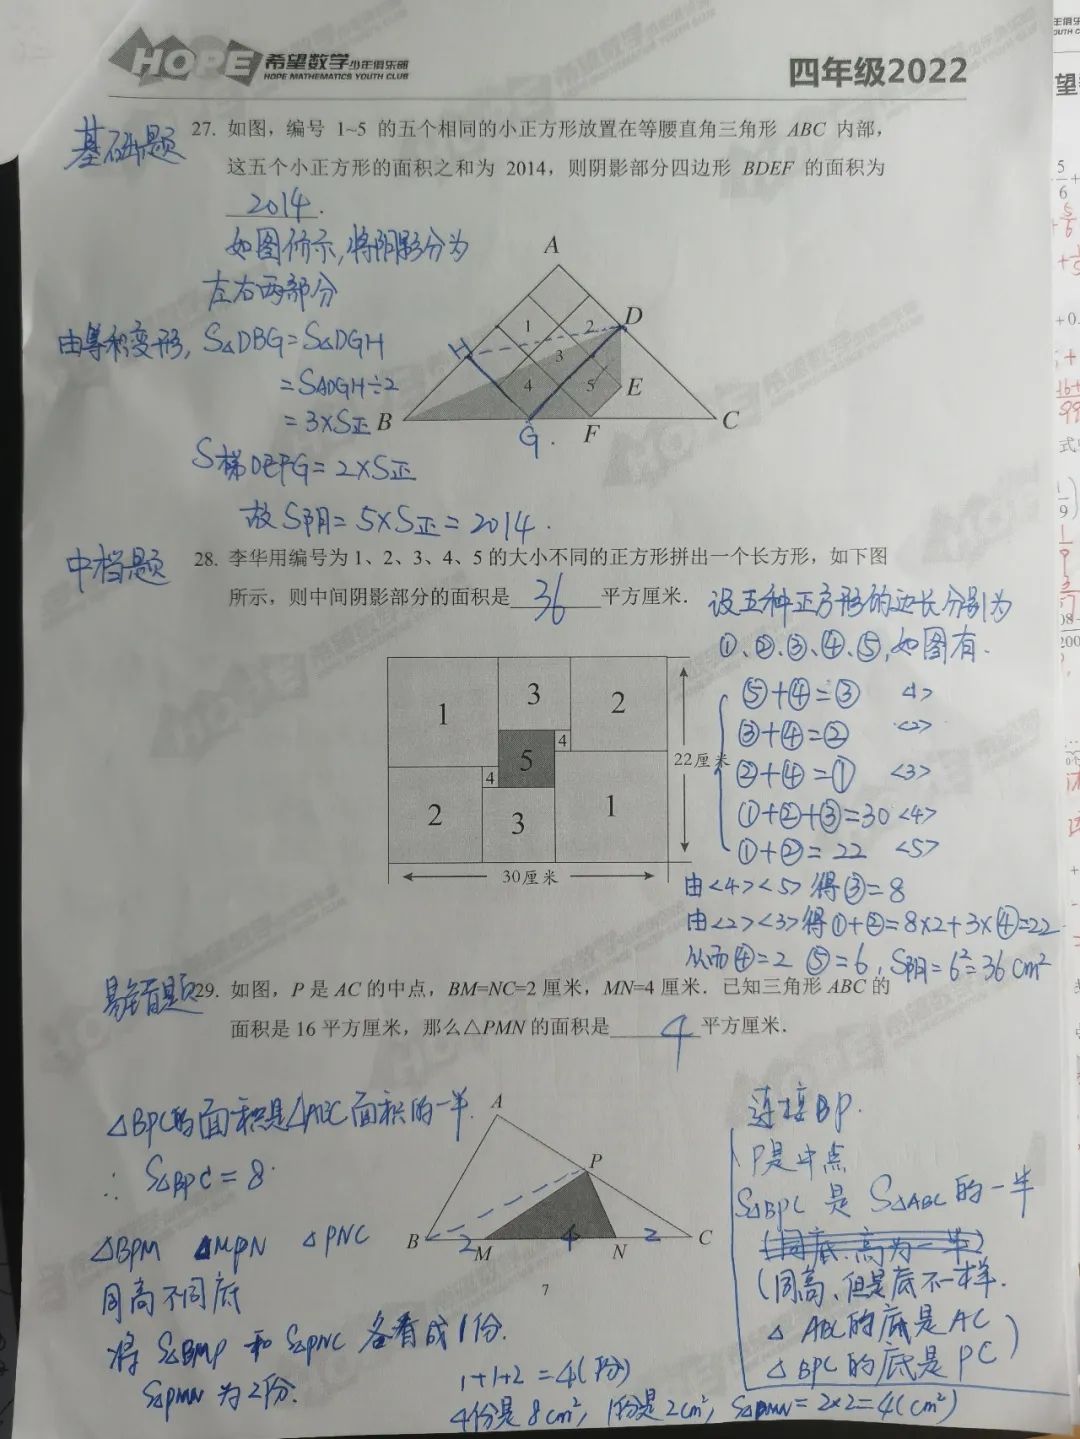 HOPE 希望数学 少年俱乐部
HOPE MATHEMATICS YOUTH CLUB
四年级2022
基础题
27. 如图，编号 1~5 的五个相同的小正方形放置在等腰直角三角形 ABC 内部，
这五个小正方形的面积之和为 2014，则阴影部分四边形 BDEF 的面积为
2014.
如图所示，将阴影分为
左右两部分
由等积变形，S△DBG=S△DGH
=SADGH÷2
=3×S正
S梯DEFG=2×S正
故S阴=5×S正=2014.
A
1
2
D
H
3
4
5
E
B
G.
F
C
中档题
28. 李华用编号为 1、2、3、4、5 的大小不同的正方形拼出一个长方形，如下图
所示，则中间阴影部分的面积是 36 平方厘米．
设五种正方形的边长分别为
①、②、③、④、⑤，如图有.
⑤+④=③ <1>
③+④=② <2>
②+④=① <3>
①+②+③=30 <4>
①+②=22 <5>
由<4><5>得③=8
由<2><3>得①+②=8×2+3×④=22
从而④=2 ⑤=6，S阴=6²=36 cm²
1
3
2
4
5
4
2
3
1
22厘米
30厘米
易错题
29. 如图，P 是 AC 的中点，BM=NC=2 厘米，MN=4 厘米．已知三角形 ABC 的
面积是 16 平方厘米，那么△PMN 的面积是 4 平方厘米．
△BPC的面积是△ABC面积的一半.
∴ S△BPC=8
△BPM △MPN △PNC
同高不同底
将 S△BMP 和 S△PNC 各看成1份.
S△PMN 为2份.
1+1+2=4(份)
4份是8cm²，1份是2cm²，S△PMN=2×2=4(cm²)
A
P
B
2
M
4
N
2
C
连接BP.
P是中点
S△BPC 是 S△ABC 的一半
(同底.高为一半)
(同高、但是底不一样.
△ABC的底是AC
△BPC的底是PC)
7